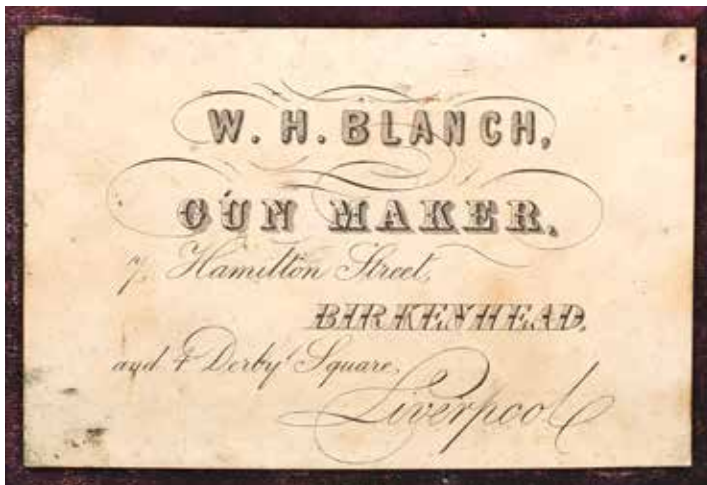 W. H. BLANCH,
GUN MAKER,
7, Hamilton Street,
BIRKENHEAD,
and 4 Derby Square,
Liverpool